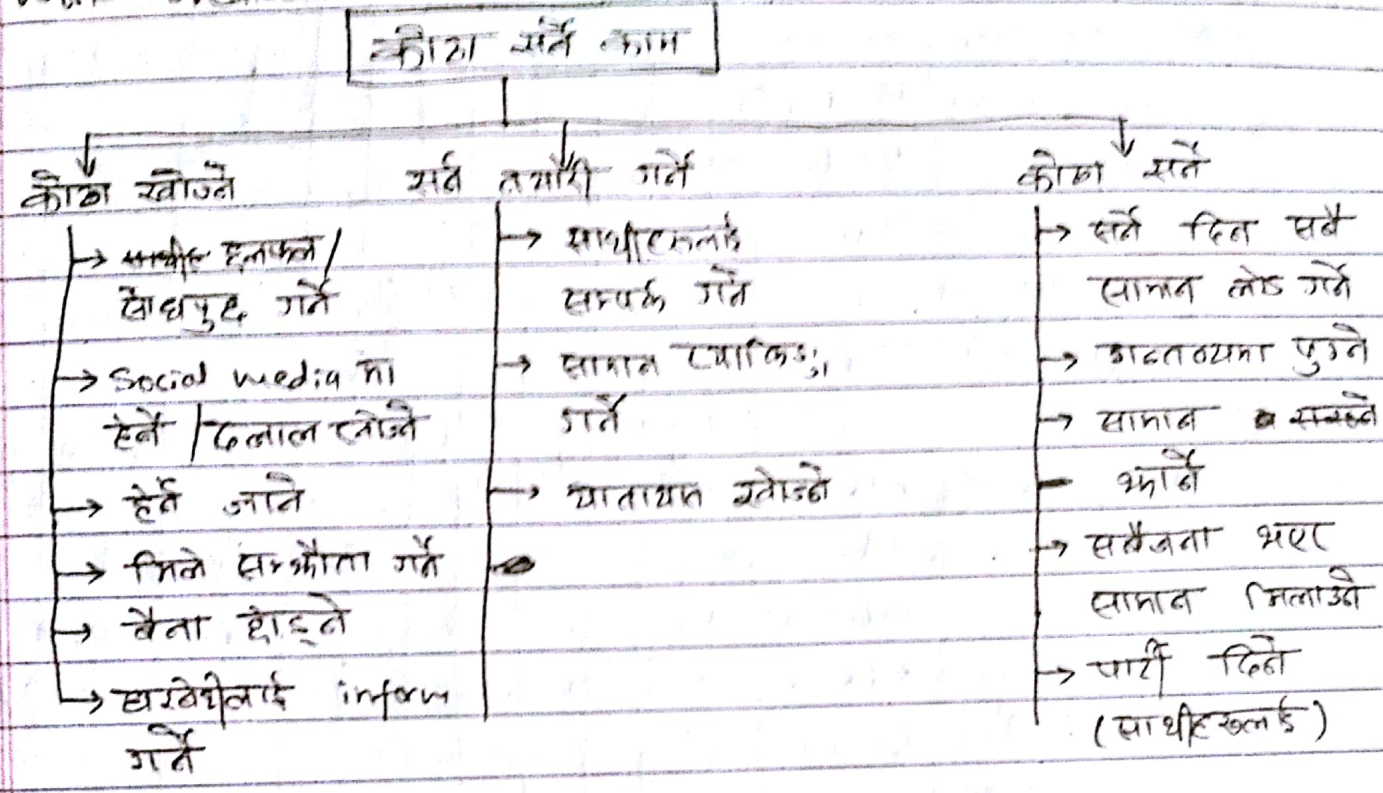 कोठा सर्ने काम
कोठा खोज्ने
छलफल/
सोधपुछ गर्ने
Social media मा
हेर्ने / दलाल खोज्ने
हेर्न जाने
मिले सम्झौता गर्ने
बैना छोड्ने
घरबेटीलाई inform
गर्ने
सर्न तयारी गर्ने
साथीहरूलाई
सम्पर्क गर्ने
सामान प्याकिङ्ग
गर्ने
यातायात खोज्ने
कोठा सर्ने
सर्ने दिन सबै
सामान लोड गर्ने
गन्तव्यमा पुग्ने
सामान
झार्ने
सबैजना भएर
सामान मिलाउने
पार्टी दिने
(साथीहरूलाई)